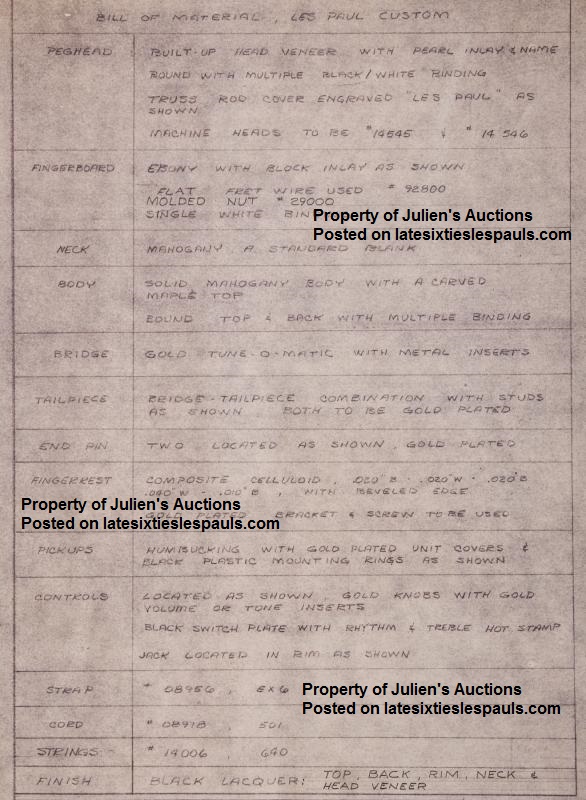 BILL OF MATERIAL, LES PAUL CUSTOM
PEGHEAD
BUILT-UP HEAD VENEER WITH PEARL INLAY & NAME
BOUND WITH MULTIPLE BLACK/WHITE BINDING
TRUSS ROD COVER ENGRAVED "LES PAUL" AS
SHOWN
MACHINE HEADS TO BE #14545 & #14546
FINGERBOARD
EBONY WITH BLOCK INLAY AS SHOWN
FLAT FRET WIRE USED #92800
MOLDED NUT #29000
SINGLE WHITE BIN
Property of Julien's Auctions
Posted on latesixtieslespauls.com
NECK
MAHOGANY A STANDARD BLANK
BODY
SOLID MAHOGANY BODY WITH A CARVED
MAPLE TOP
BOUND TOP & BACK WITH MULTIPLE BINDING
BRIDGE
GOLD TUNE-O-MATIC WITH METAL INSERTS
TAILPIECE
BRIDGE-TAILPIECE COMBINATION WITH STUDS
AS SHOWN BOTH TO BE GOLD PLATED
END PIN
TWO LOCATED AS SHOWN, GOLD PLATED
FINGERREST
COMPOSITE CELLULOID, .020"B - .020"W - .020"B
.040"W - .010"B, WITH BEVELED EDGE
Property of Julien's Auctions
Posted on latesixtieslespauls.com
GOLD PLATED BRACKET & SCREW TO BE USED
PICKUPS
HUMBUCKING WITH GOLD PLATED UNIT COVERS &
BLACK PLASTIC MOUNTING RINGS AS SHOWN
CONTROLS
LOCATED AS SHOWN, GOLD KNOBS WITH GOLD
VOLUME OR TONE INSERTS
BLACK SWITCH PLATE WITH RHYTHM & TREBLE HOT STAMP
JACK LOCATED IN RIM AS SHOWN
STRAP
#08956,
Property of Julien's Auctions
Posted on latesixtieslespauls.com
CORD
#08918, 501
STRINGS
#14006, 640
FINISH
BLACK LACQUER: TOP, BACK, RIM, NECK &
HEAD VENEER